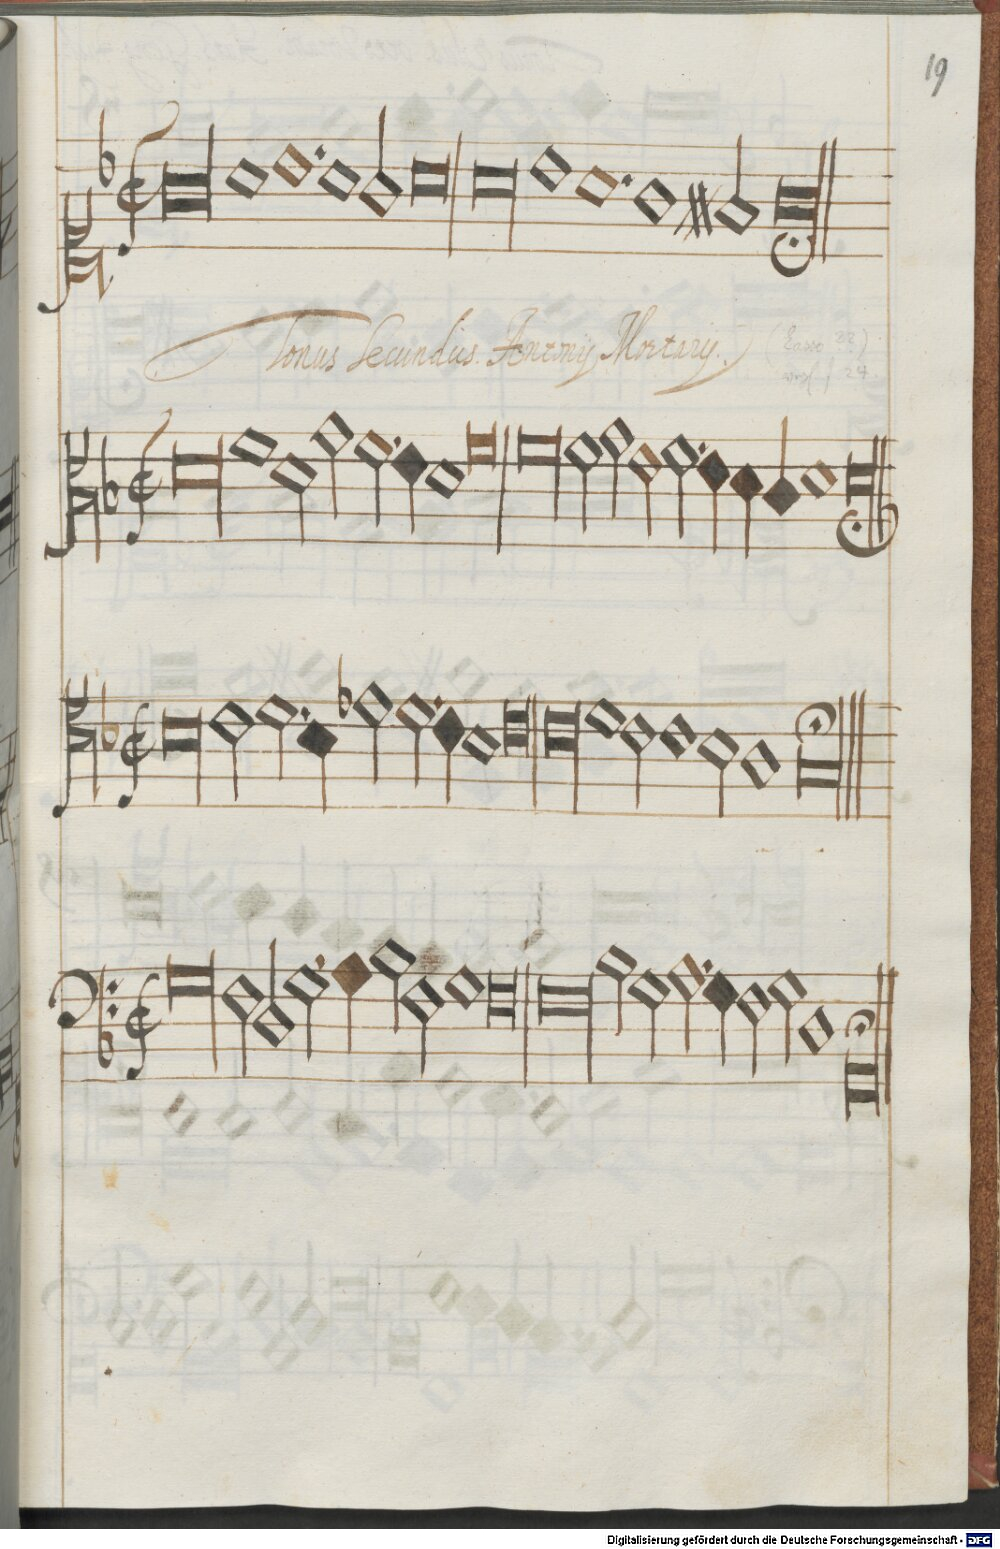 19
Tonus Secundus. Antonij Mortarij.
(Lasso 22)
24
Digitalisierung gefördert durch die Deutsche Forschungsgemeinschaft - DFG